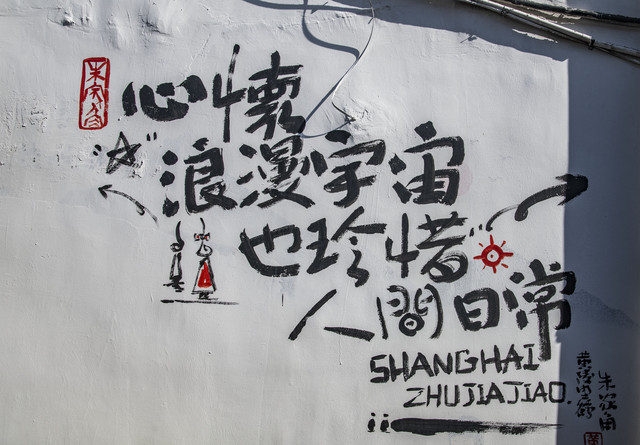 朱家角
心懷
浪漫宇宙
也珍惜
人間日常
SHANGHAI
ZHUJIAJIAO.
朱家角